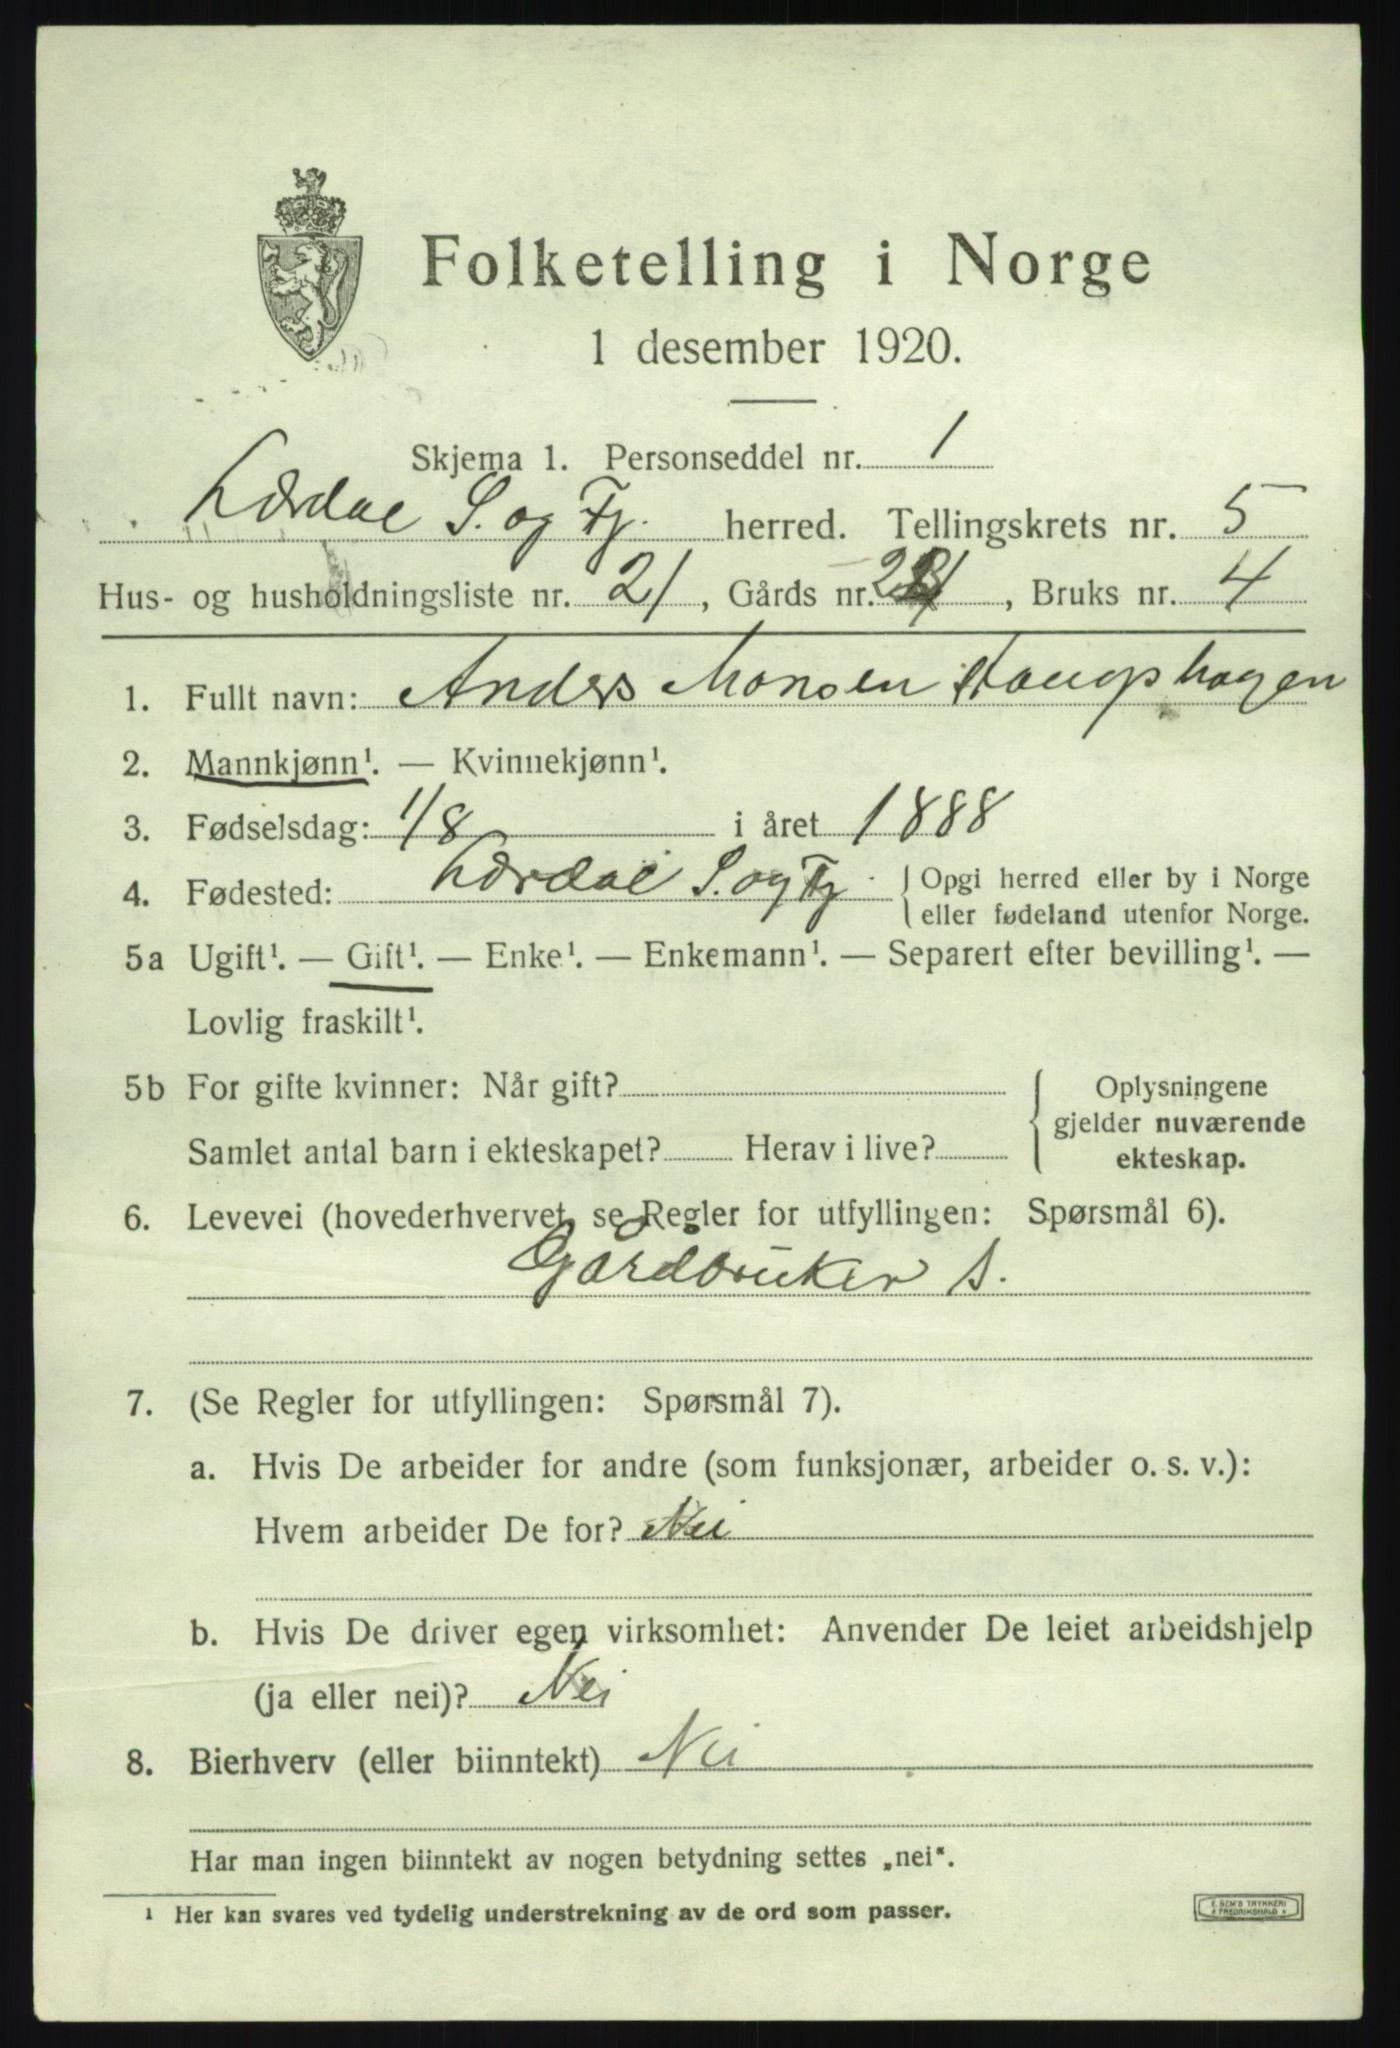 Folketelling i Norge
1 desember 1920.
Skjema 1. Personseddel nr. 1
Lærdal S. og Fj. herred. Tellingskrets nr. 5
Hus- og husholdningsliste nr. 21, Gårds nr. , Bruks nr. 4
1. Fullt navn: Anders Monsen
2. Mannkjønn¹. — Kvinnekjønn¹.
3. Fødselsdag: 1/8 i året 1888
4. Fødested: Lærdal S. og Fj. { Opgi herred eller by i Norge
eller fødeland utenfor Norge.
5a Ugift¹. — Gift¹. — Enke¹. — Enkemann¹. — Separert efter bevilling¹. —
Lovlig fraskilt¹.
5b For gifte kvinner: Når gift? { Oplysningene
gjelder nuværende
Samlet antal barn i ekteskapet? Herav i live? ekteskap.
6. Levevei (hovederhvervet, se Regler for utfyllingen: Spørsmål 6).
Gårdbruker s.
7. (Se Regler for utfyllingen: Spørsmål 7).
a. Hvis De arbeider for andre (som funksjonær, arbeider o. s. v.):
Hvem arbeider De for? Nei
b. Hvis De driver egen virksomhet: Anvender De leiet arbeidshjelp
(ja eller nei)? Nei
8. Bierhverv (eller biinntekt) Nei
Har man ingen biinntekt av nogen betydning settes „nei“.
¹ Her kan svares ved tydelig understrekning av de ord som passer.
E. SEM'S TRYKKERI
FREDRIKSHALD